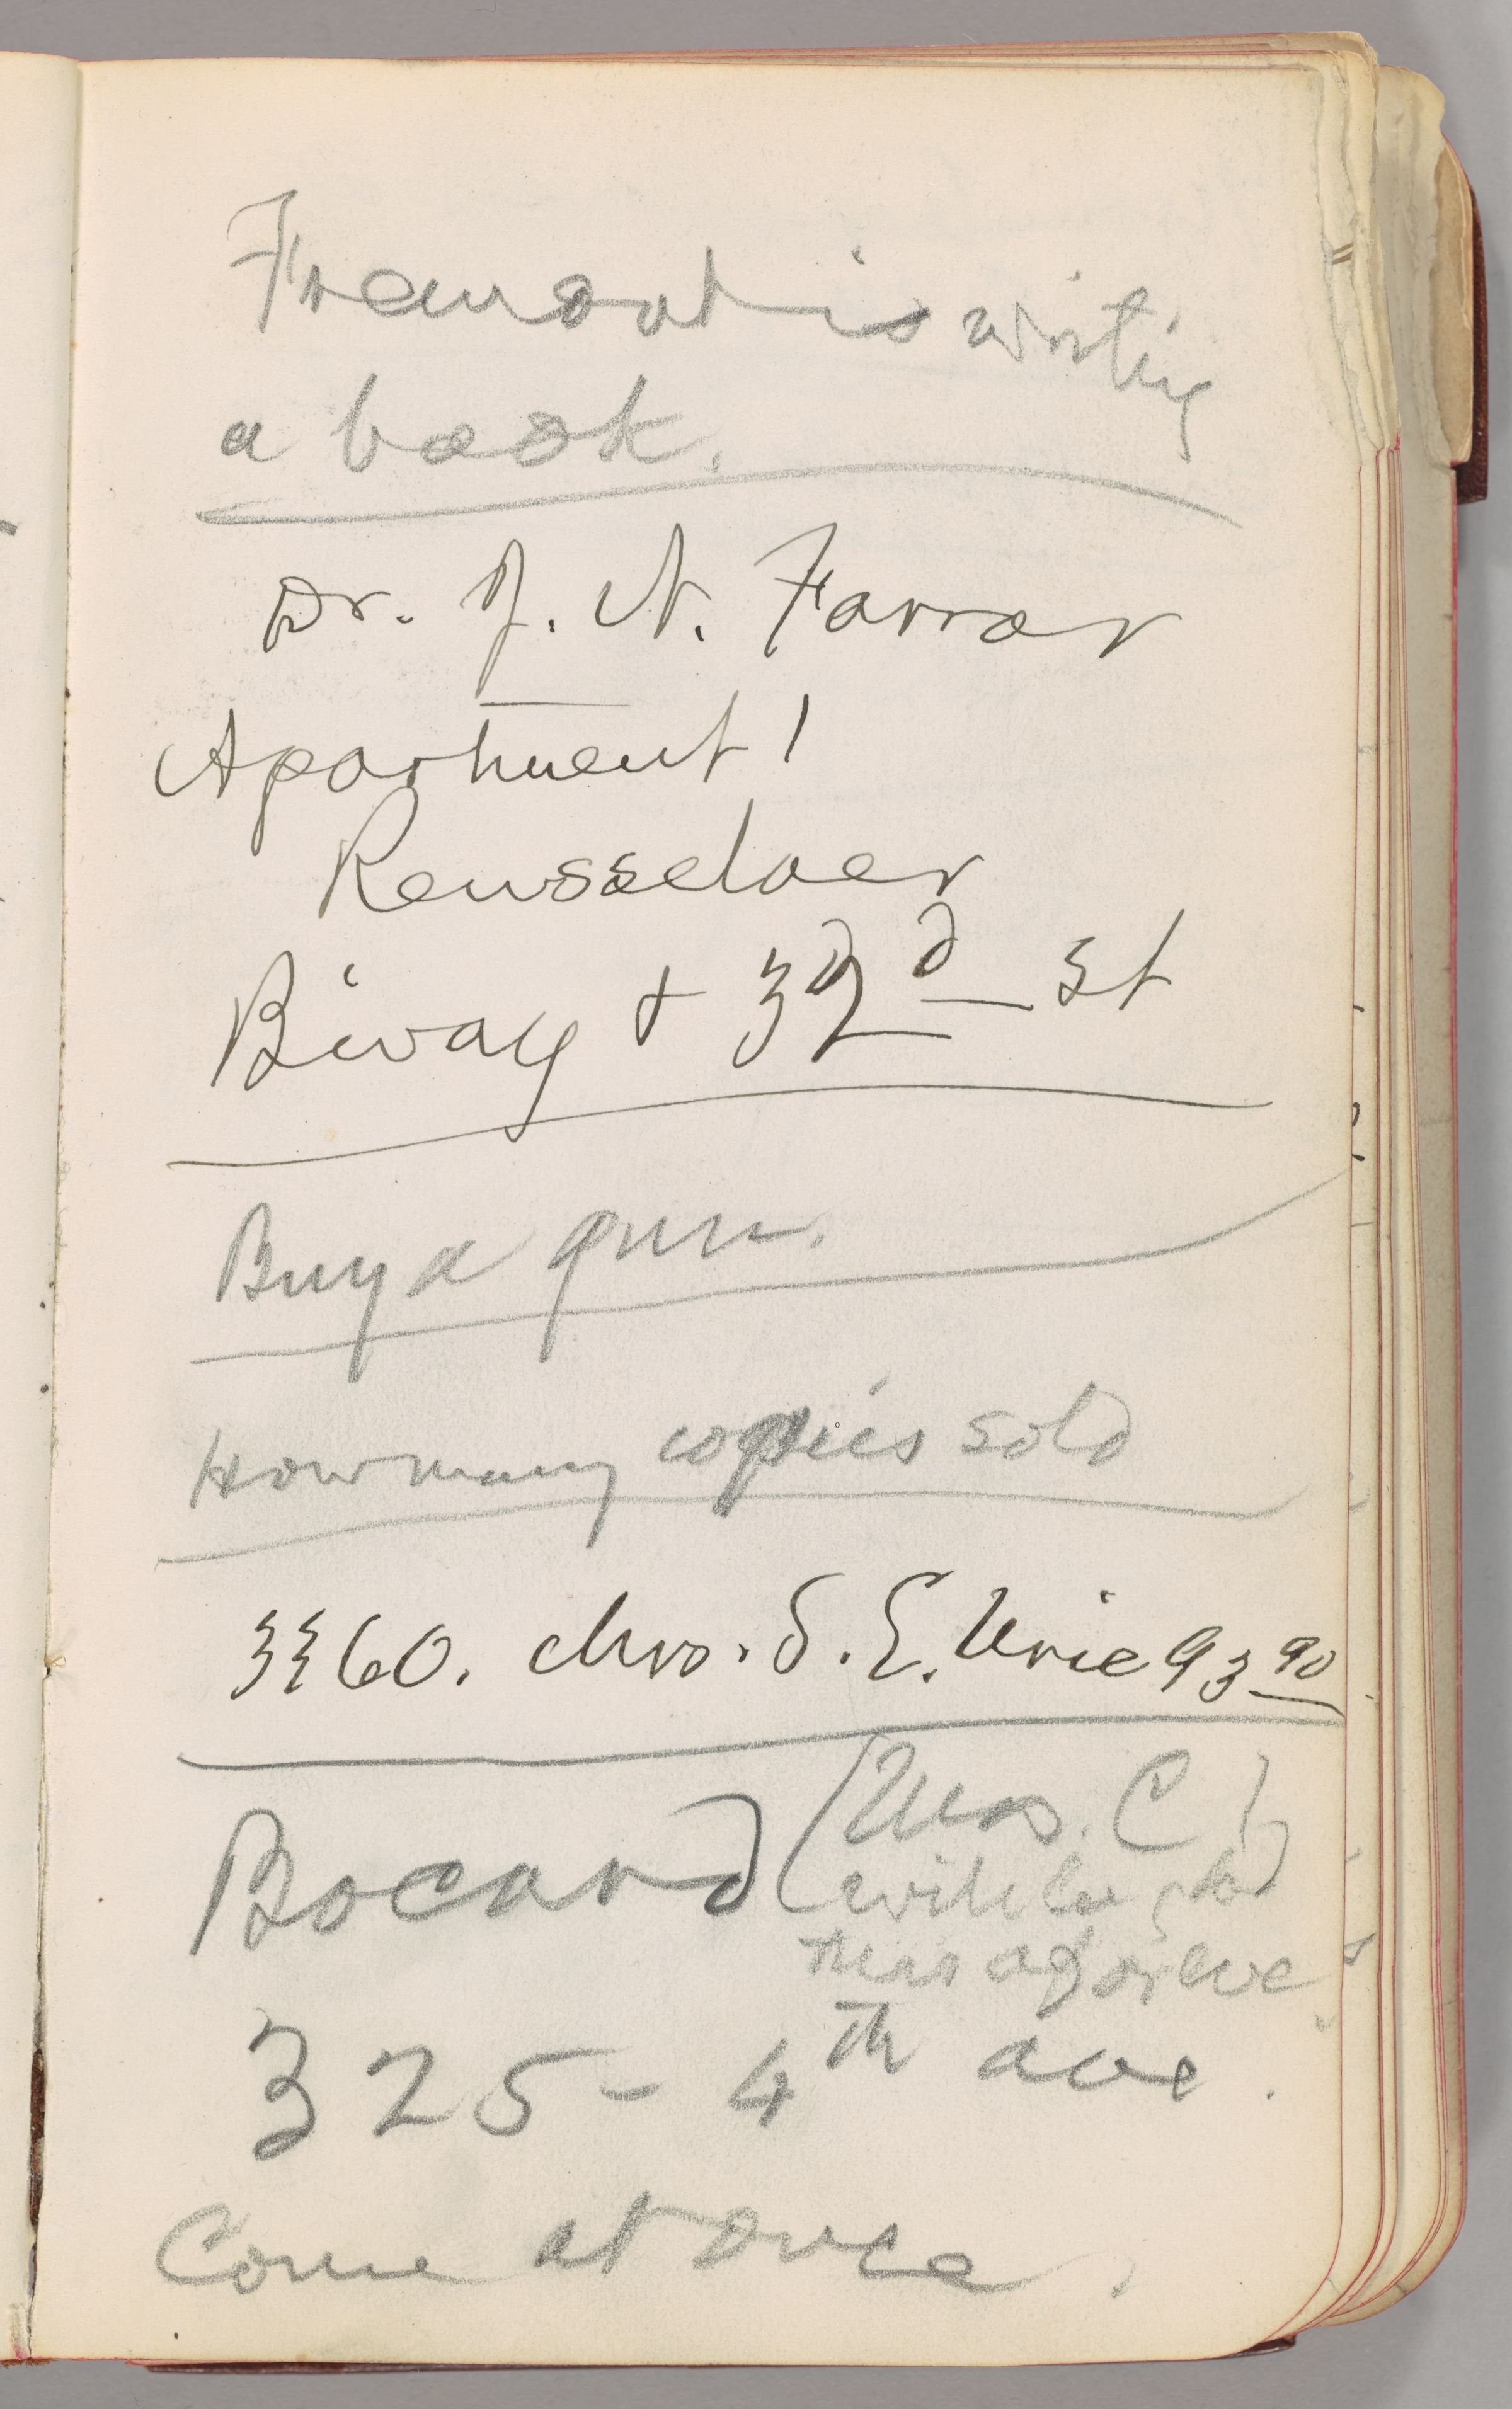 Fremont is writing
a book.
Dr. J. N. Farrar
Apartment 1
Rensselaer
B'way + 32d St
Buy a gun.
How many copies sold
3360. Mrs. S. E. Urie 93 90
Bocard (Mrs. C
will be glad
this aft or eve
325 - 4th ave.
Come at once.